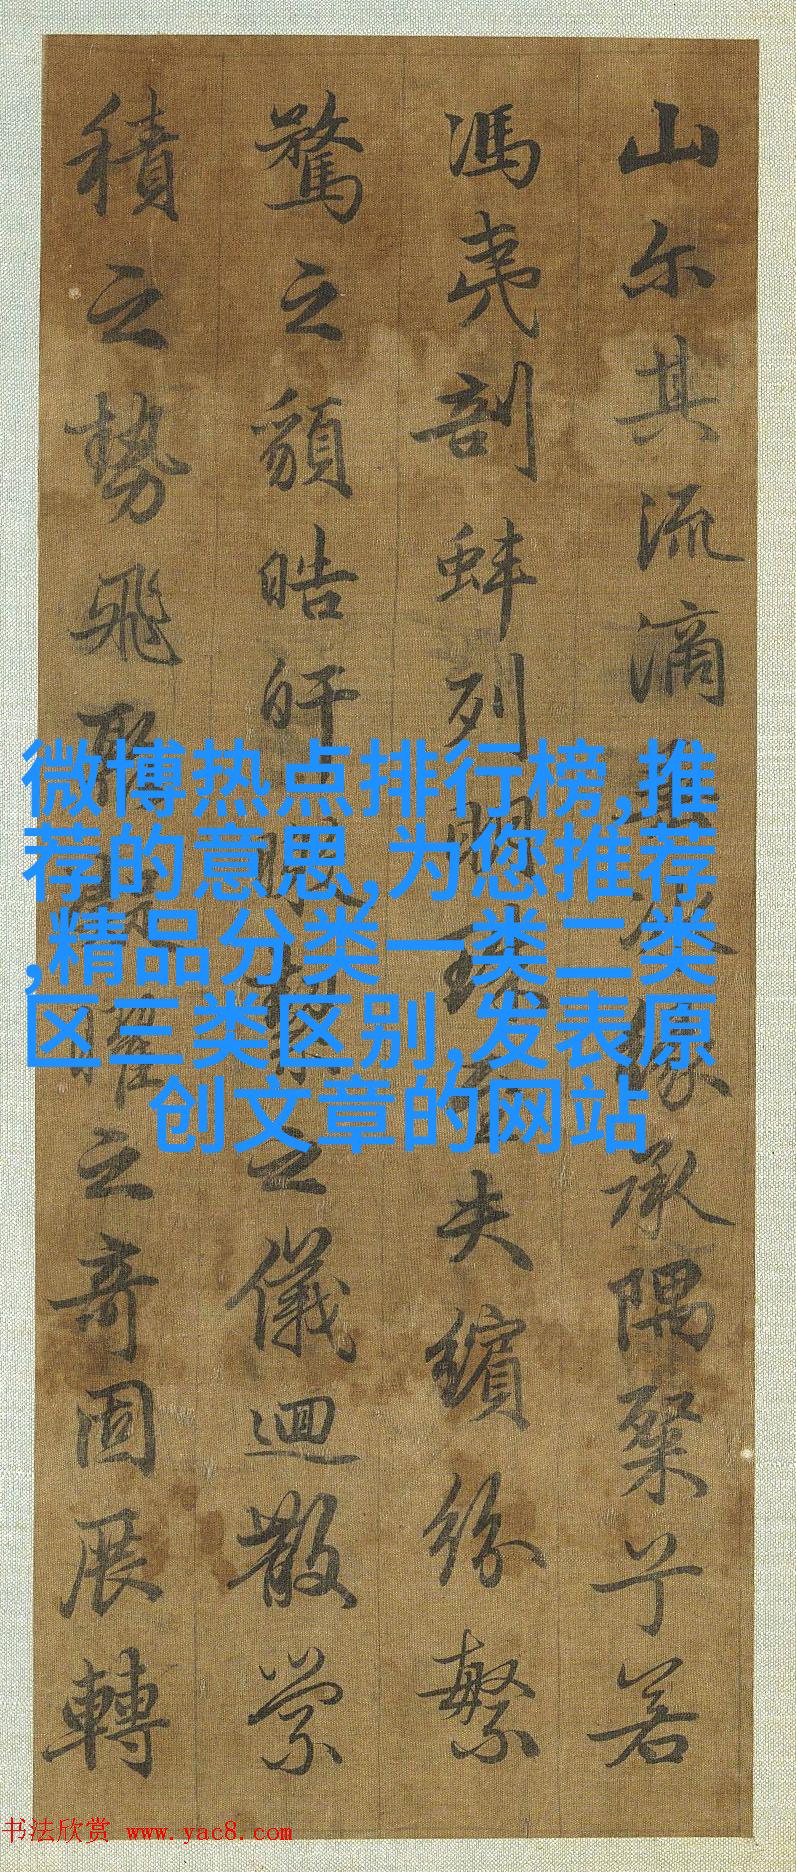 山尔其流滴垂冰緣承隅粲兮若
馮夷剖蚌列明珠至夫繽紛繁
騖之貌皓皔潔之儀迴散縈
積之勢飛聚曜之奇固展轉
微博热点排行榜,推
荐的意思,为您推荐
,精品分类一类二类
区三类区别,发表原
创文章的网站
书法欣赏 www.yac8.com